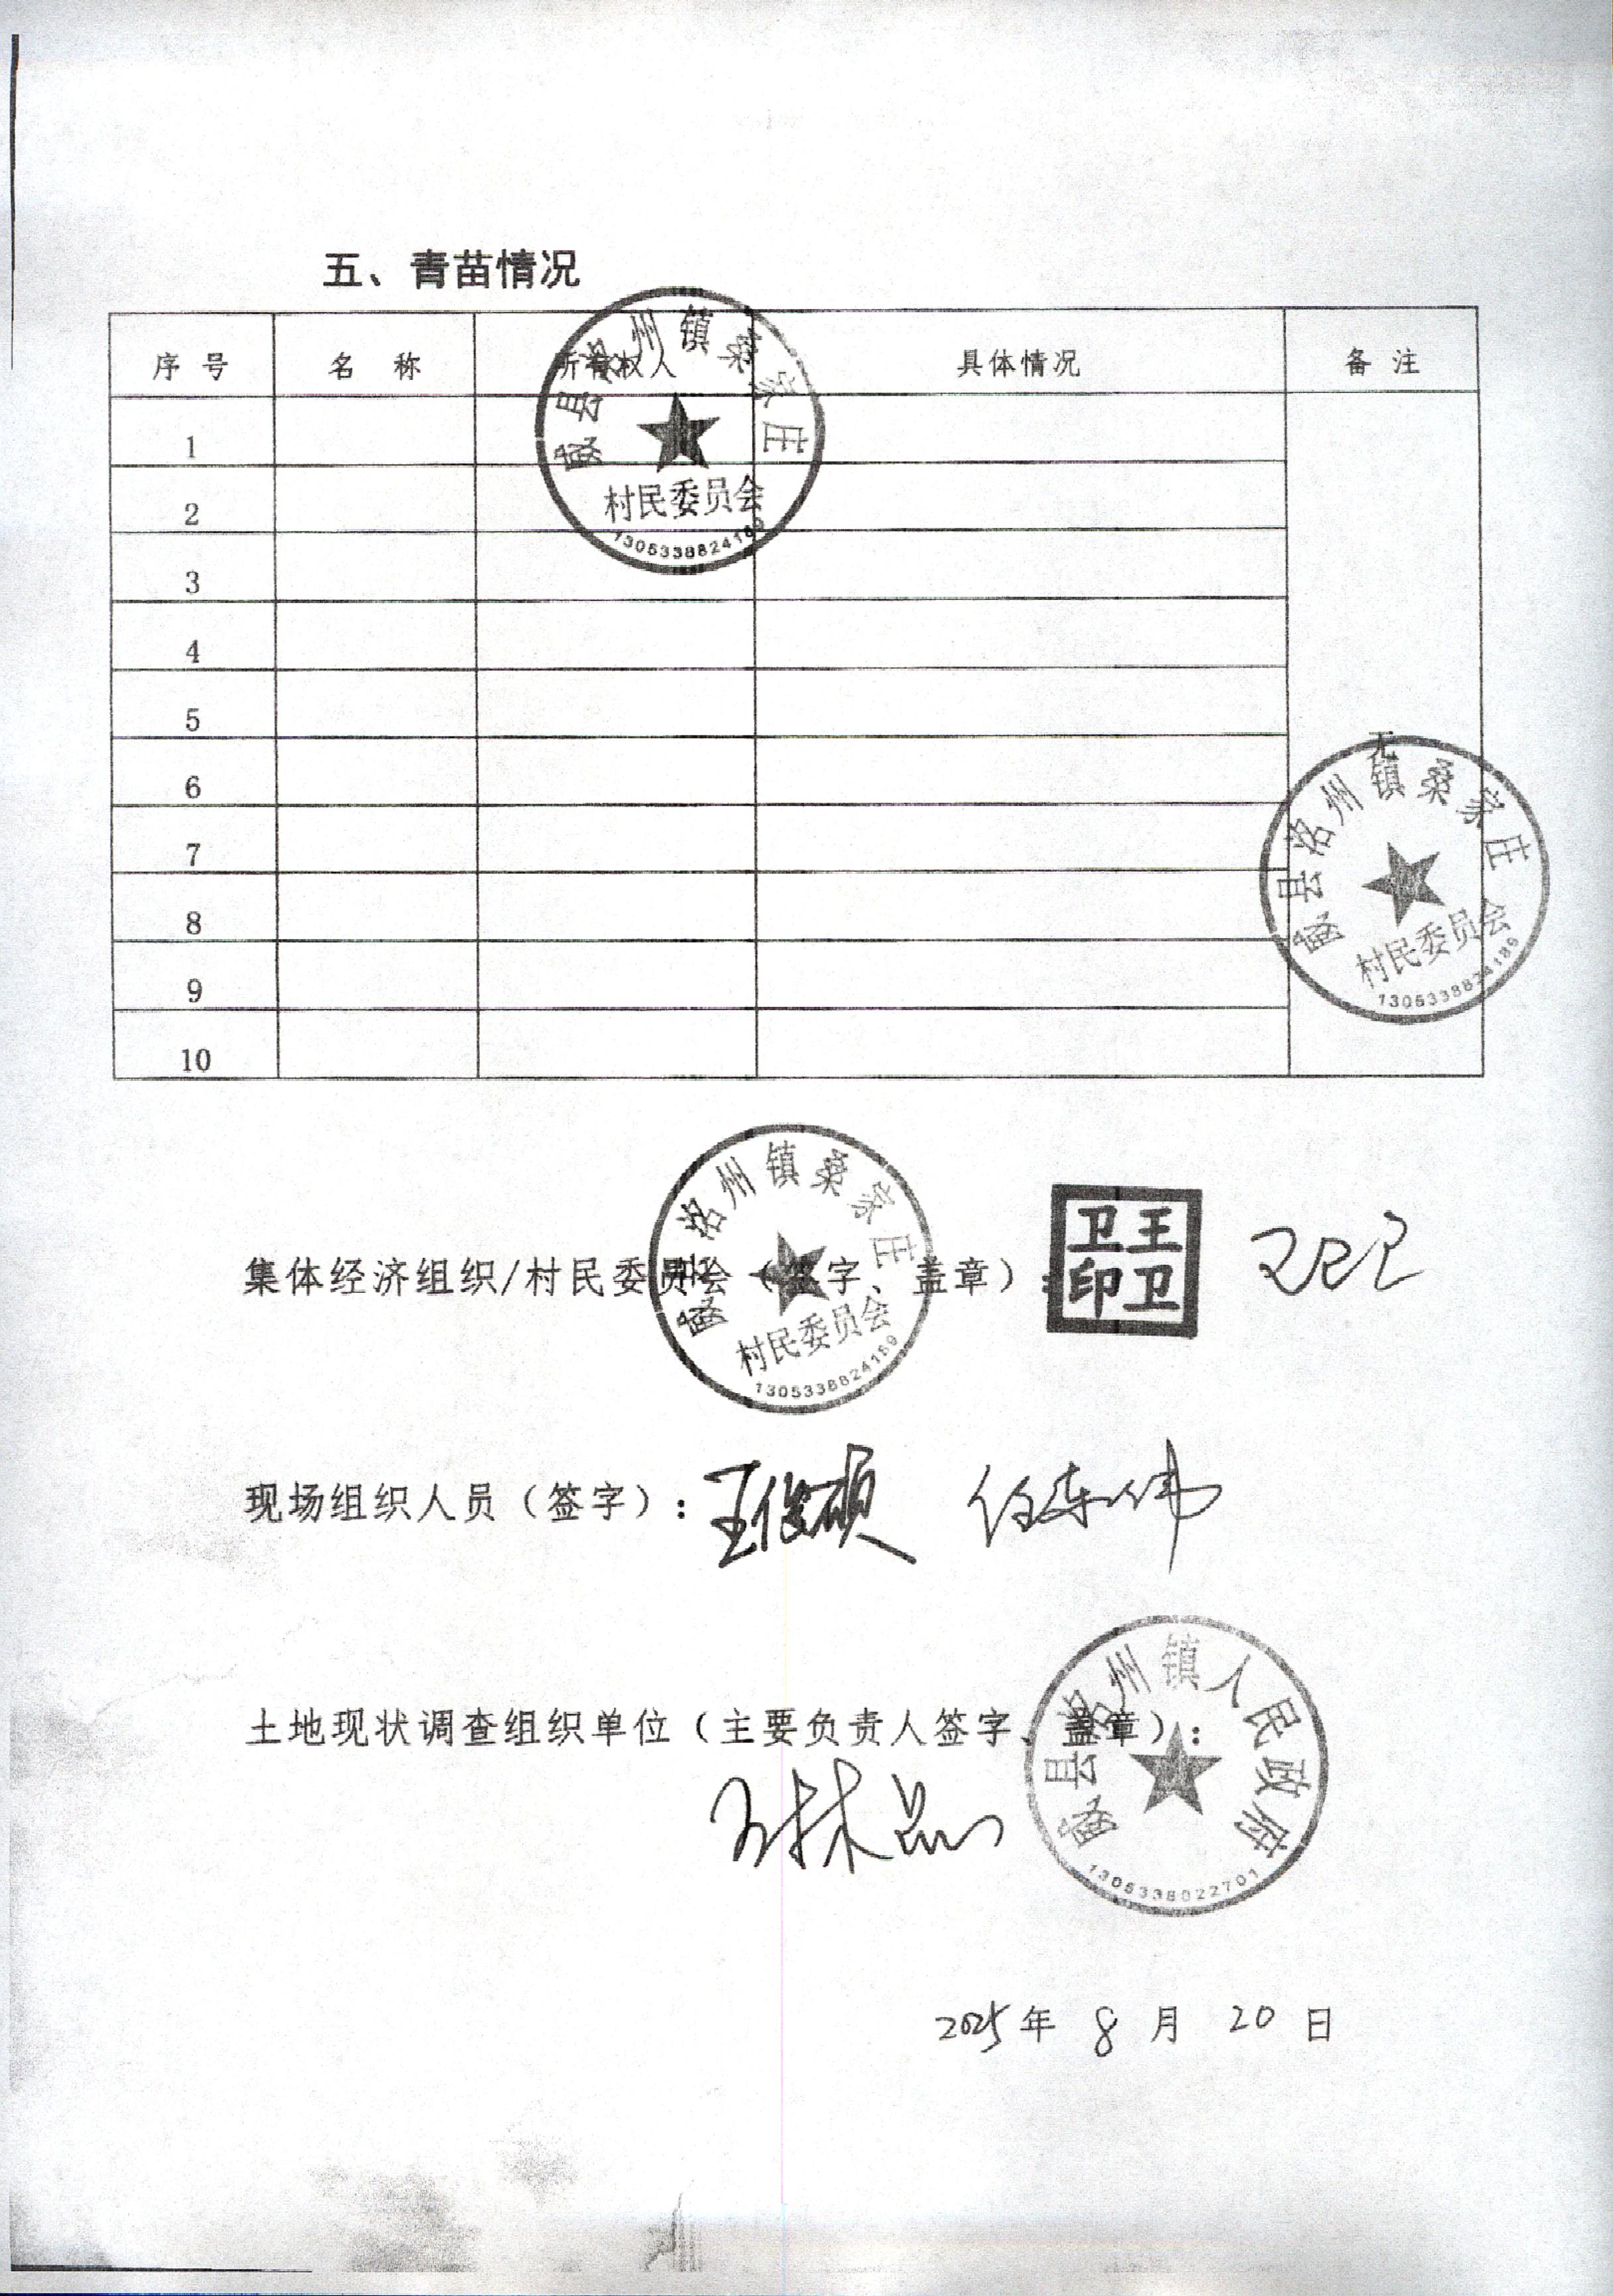 五、青苗情况
序 号 名 称 所有权人 具体情况 备 注
1
2
3
4
5
6
7
8
9
10
无
威县洺州镇桑家庄
村民委员会
1305338824189
威县洺州镇桑家庄
村民委员会
1305338824189
集体经济组织/村民委员会（签字、盖章）：
威县洺州镇桑家庄
村民委员会
1305338824189
王卫卫印
王卫卫
现场组织人员（签字）：王俊硕 任东伟
土地现状调查组织单位（主要负责人签字、盖章）：
威县洺州镇人民政府
1305338022701
2025年 8 月 20 日